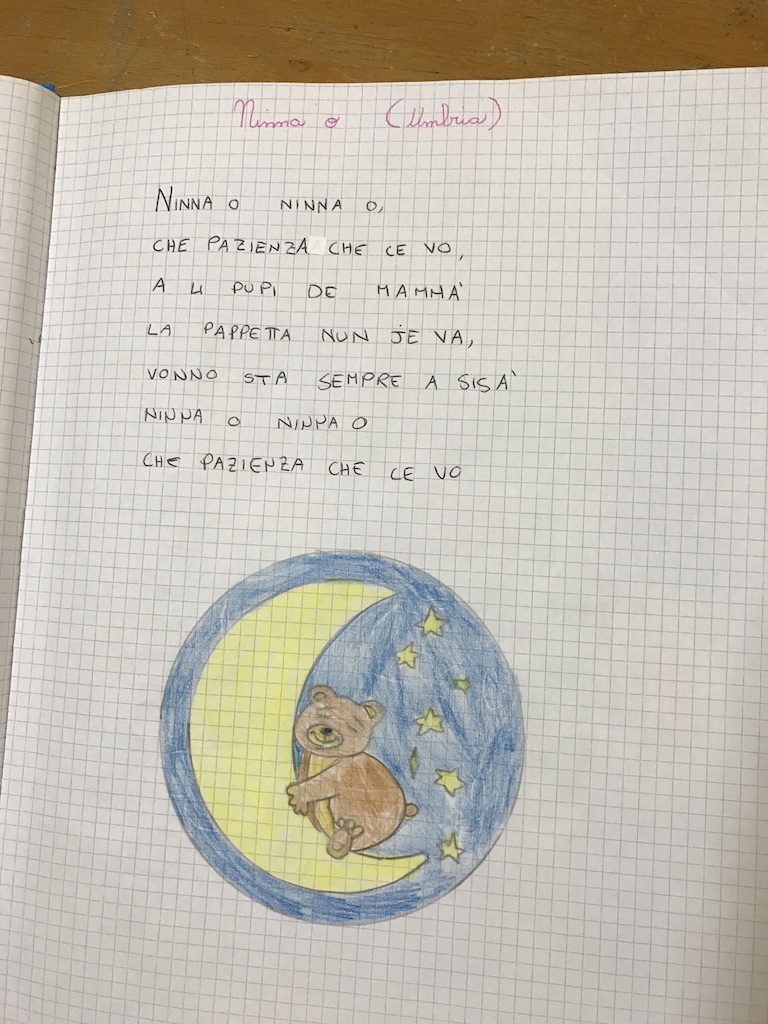 Ninna o (Umbria)
NINNA O NINNA O,
CHE PAZIENZA CHE CE VO,
A LI PUPI DE MAMMA'
LA PAPPETTA NUN JE VA,
VONNO STA SEMPRE A SISA'
NINNA O NINNA O
CHE PAZIENZA CHE CE VO